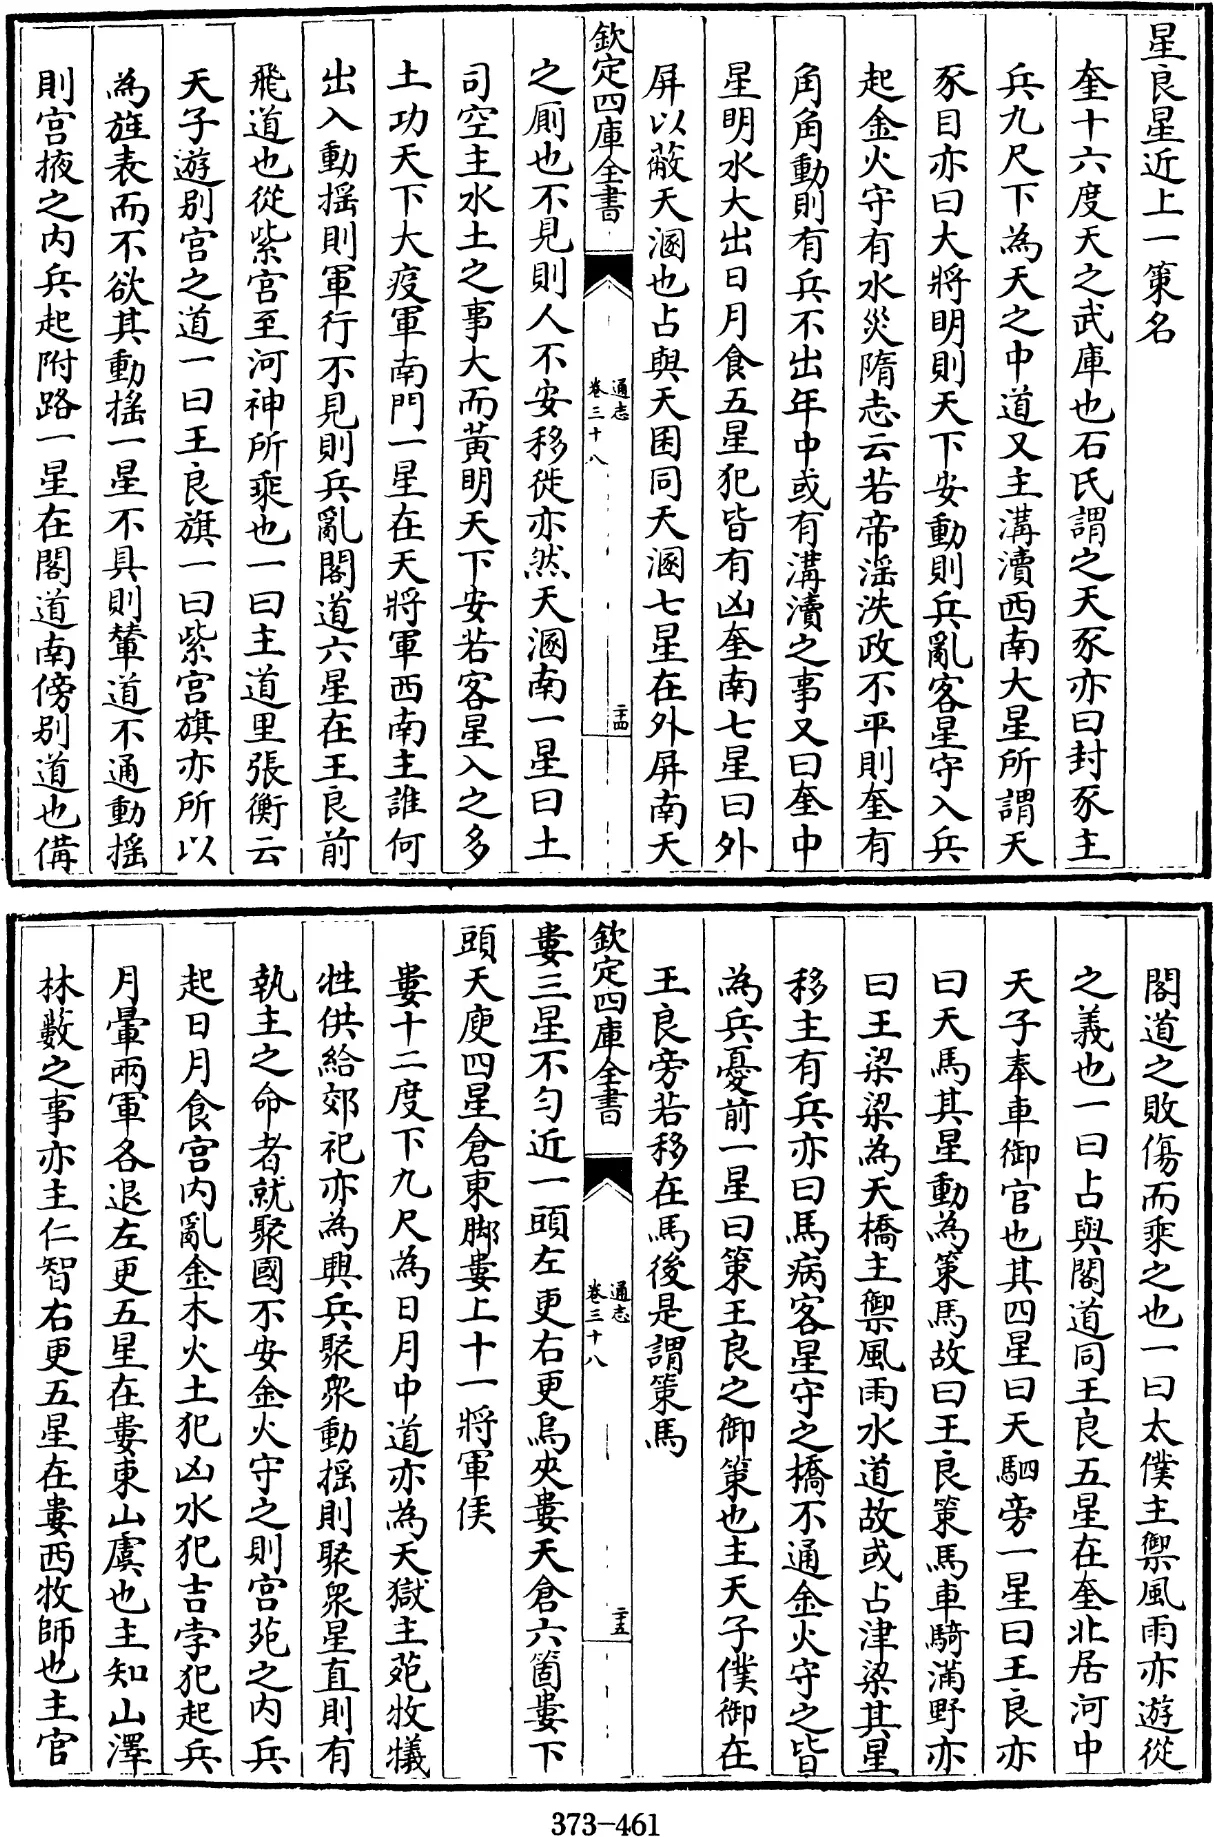 星良星近上一策名
奎十六度天之武庫也石氏謂之天豕亦曰封豕主
兵九尺下為天之中道又主溝瀆西南大星所謂天
豕目亦曰大將明則天下安動則兵亂客星守入兵
起金火守有水災隋志云若帝滛泆政不平則奎有
角角動則有兵不出年中或有溝瀆之事又曰奎中
星明水大出日月食五星犯皆有凶奎南七星曰外
屏以蔽天溷也占與天囷同天溷七星在外屏南天
欽定四庫全書
通志
卷三十八
二十四
之厠也不見則人不安移徙亦然天溷南一星曰土
司空主水土之事大而黃明天下安若客星入之多
土功天下大疫軍南門一星在天將軍西南主誰何
出入動揺則軍行不見則兵亂閣道六星在王良前
飛道也從紫宫至河神所乘也一曰主道里張衡云
天子遊别宫之道一曰王良旗一曰紫宫旗亦所以
為旌表而不欲其動揺一星不具則輦道不通動揺
則宫掖之内兵起附路一星在閣道南傍别道也備
閣道之敗傷而乘之也一曰太僕主禦風雨亦遊從
之義也一曰占與閣道同王良五星在奎北居河中
天子奉車御官也其四星曰天駟旁一星曰王良亦
曰天馬其星動為策馬故曰王良策馬車騎滿野亦
曰王梁梁為天橋主禦風雨水道故或占津梁其星
移主有兵亦曰馬病客星守之橋不通金火守之皆
為兵憂前一星曰策王良之御策也主天子僕御在
王良旁若移在馬後是謂策馬
欽定四庫全書
通志
卷三十八
二十五
婁三星不匀近一頭左更右更烏夾婁天倉六箇婁下
頭天庾四星倉東脚婁上十一將軍侯
婁十二度下九尺為日月中道亦為天獄主苑牧犠
牲供給郊祀亦為興兵聚衆動揺則聚衆星直則有
執主之命者就聚國不安金火守之則宫苑之内兵
起日月食宫内亂金木火土犯凶水犯吉孛犯起兵
月暈兩軍各退左更五星在婁東山虞也主知山澤
林藪之事亦主仁智右更五星在婁西牧師也主官
373-461